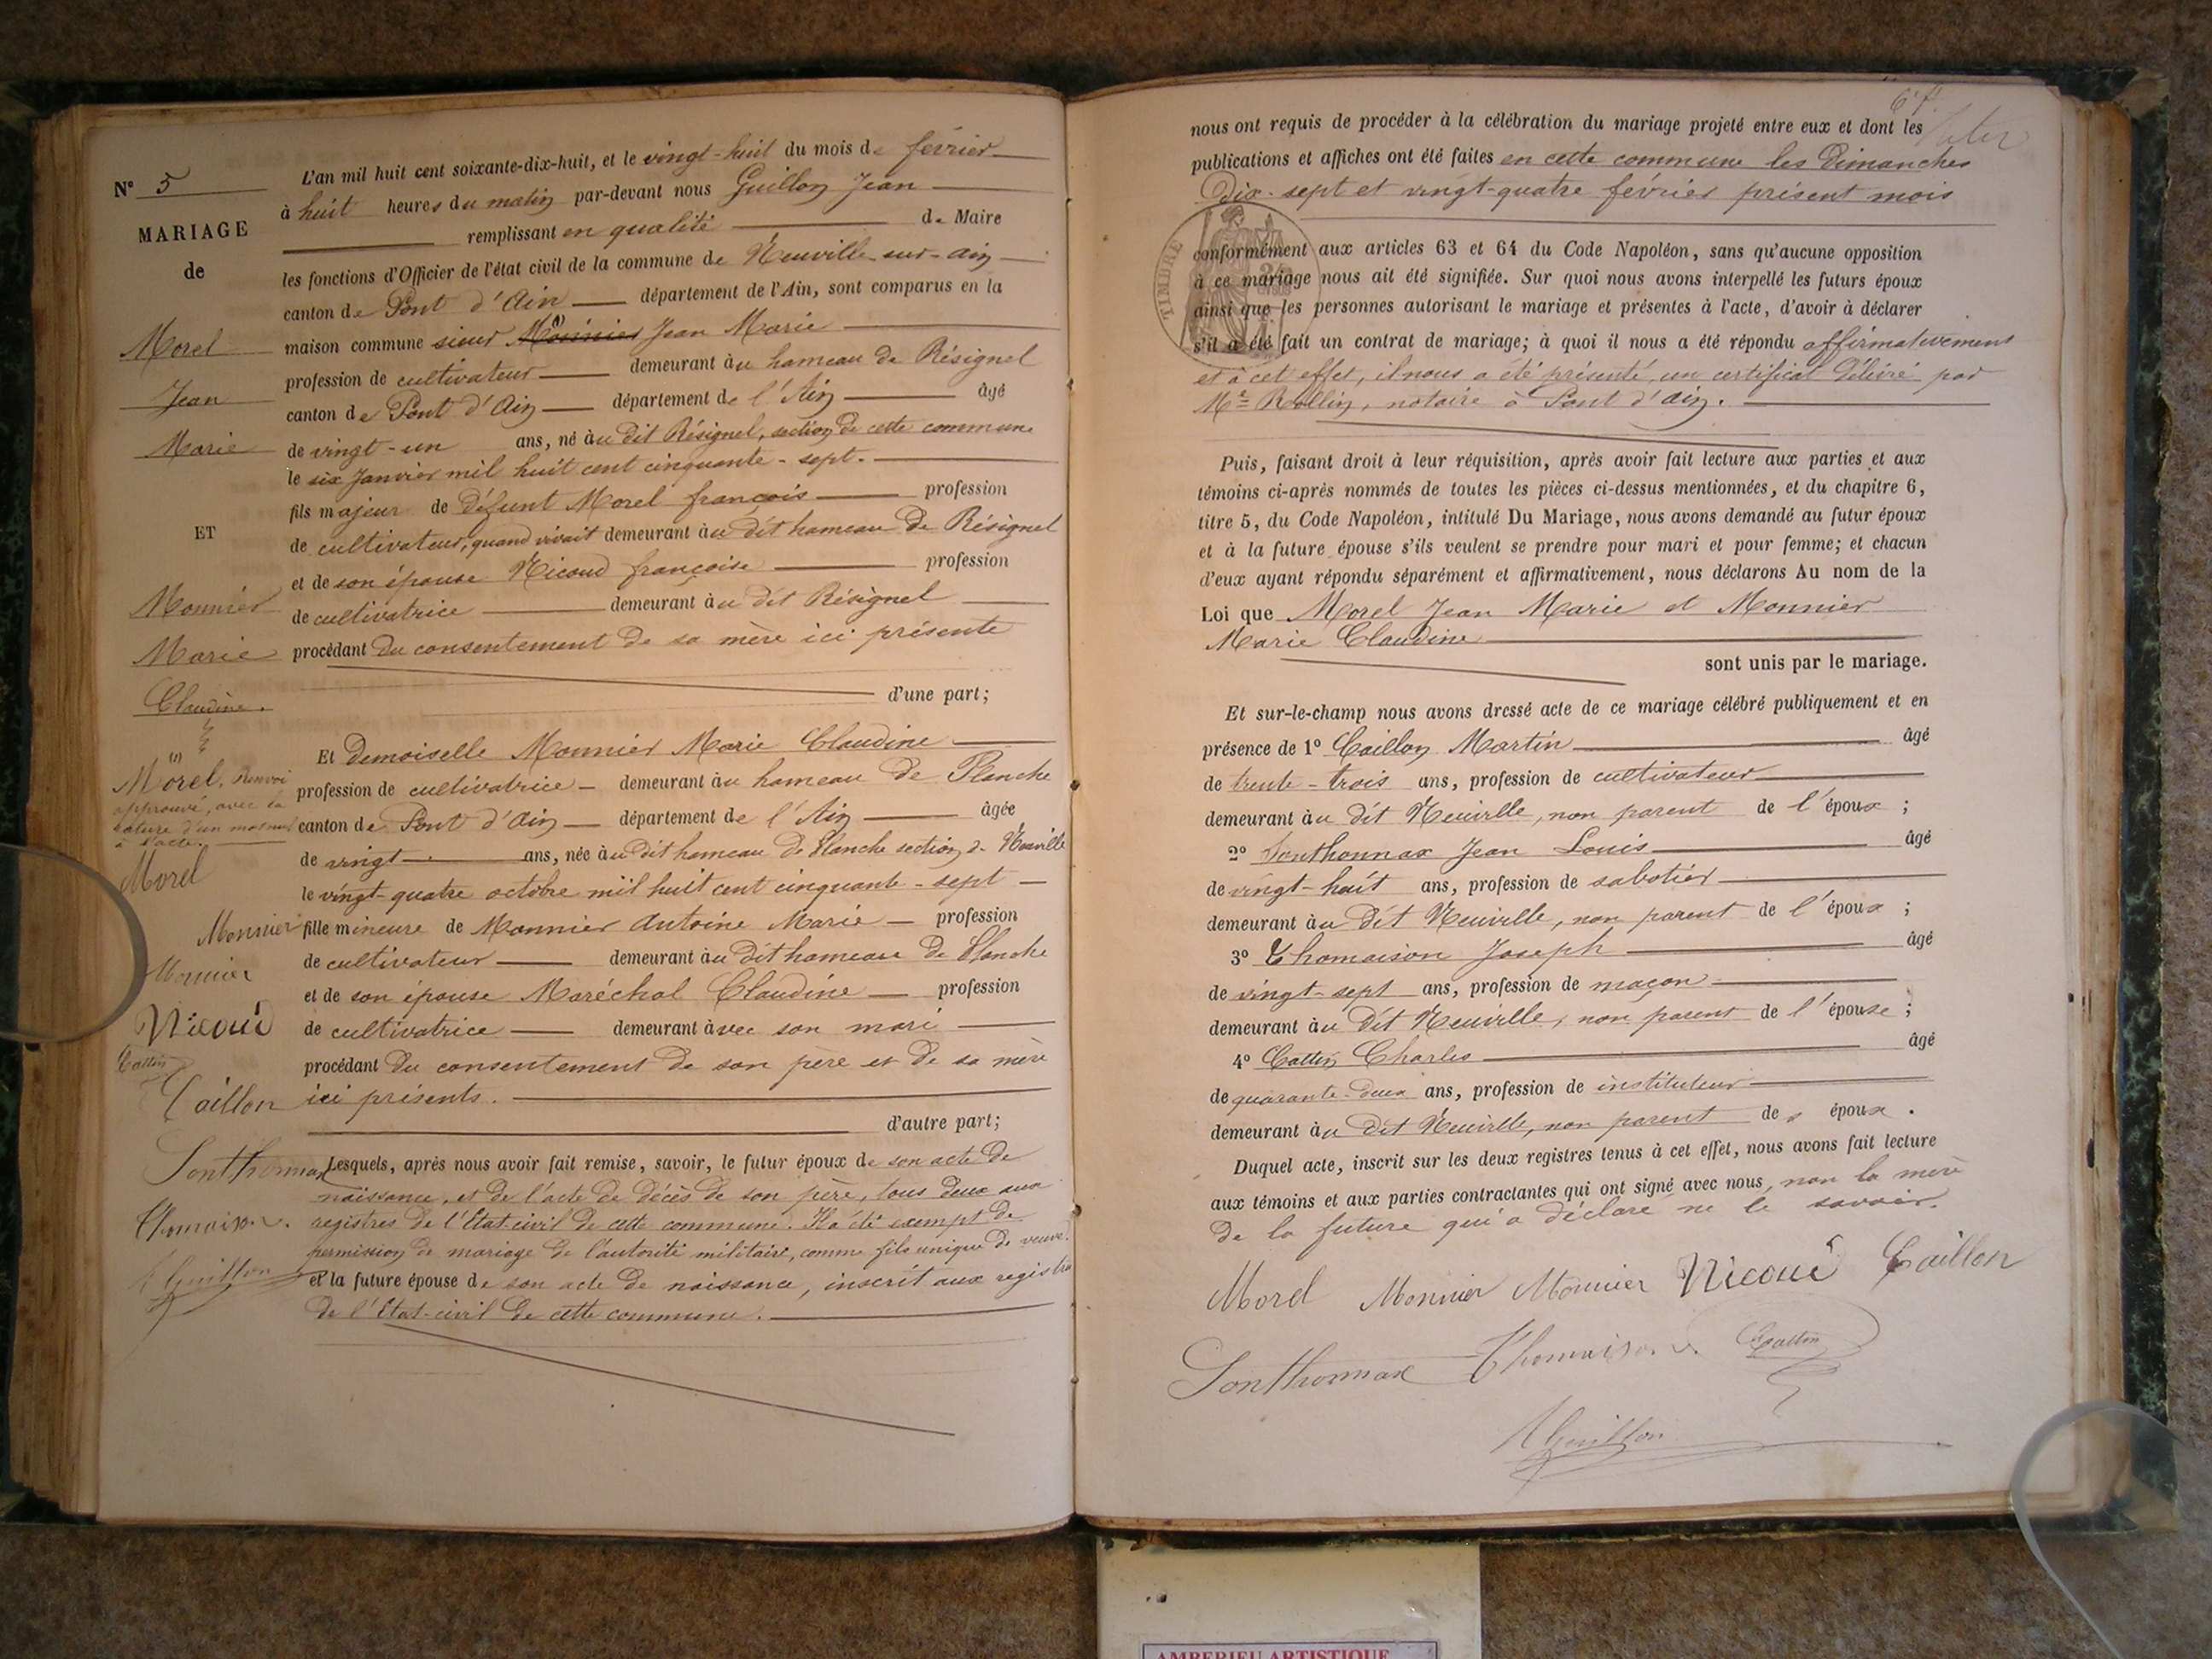 N° 5
MARIAGE
de
Morel
Jean
Marie
ET
Monnier
Marie
Claudine.
(1)
Morel, Renvoi
approuvé, avec la
rature d'un mot nul
à l'acte.
Morel
Monnier
Monnier
Nicoud
Cattin
Caillon
Sonthonnax
Thomaison
Guillon
L'an mil huit cent soixante-dix-huit, et le vingt-huit du mois de février
à huit heures du matin par-devant nous Guillon Jean
remplissant en qualité de Maire
les fonctions d'Officier de l'état civil de la commune de Neuville-sur-Ain
canton de Pont d'Ain département de l'Ain, sont comparus en la
maison commune sieur Monnier (1) Jean Marie
profession de cultivateur demeurant au hameau de Résignel
canton de Pont d'Ain département de l'Ain âgé
de vingt-un ans, né au dit Résignel, section de cette commune
le six Janvier mil huit cent cinquante-sept.
fils majeur de défunt Morel françois profession
de cultivateur, quand vivait demeurant au dit hameau de Résignel
et de son épouse Nicoud françoise profession
de cultivatrice demeurant au dit Résignel
procédant du consentement de sa mère ici présente
d'une part;
Et Demoiselle Monnier Marie Claudine
profession de cultivatrice demeurant au hameau de Planche
canton de Pont d'Ain département de l'Ain âgée
de vingt ans, née au dit hameau de Planche section de Neuville
le vingt-quatre octobre mil huit cent cinquante-sept
fille mineure de Monnier Antoine Marie profession
de cultivateur demeurant au dit hameau de Planche
et de son épouse Maréchal Claudine profession
de cultivatrice demeurant avec son mari
procédant du consentement de son père et de sa mère
ici présents.
d'autre part;
Lesquels, après nous avoir fait remise, savoir, le futur époux de son acte de
naissance, et de l'acte de décès de son père, tous deux aux
registres de l'Etat-civil de cette commune. Il a été exempt de
permission de mariage de l'autorité militaire, comme fils unique de veuve.
et la future épouse de son acte de naissance, inscrit aux registres
de l'Etat-civil de cette commune.
nous ont requis de procéder à la célébration du mariage projeté entre eux et dont les
publications et affiches ont été faites en cette commune les Dimanches
Dix-sept et vingt-quatre février présent mois
TIMBRE
conformément aux articles 63 et 64 du Code Napoléon, sans qu'aucune opposition
à ce mariage nous ait été signifiée. Sur quoi nous avons interpellé les futurs époux
ainsi que les personnes autorisant le mariage et présentes à l'acte, d'avoir à déclarer
s'il a été fait un contrat de mariage; à quoi il nous a été répondu affirmativement
et à cet effet, il nous a été présenté, un certificat délivré par
Me Rollin, notaire à Pont d'Ain.
Puis, faisant droit à leur réquisition, après avoir fait lecture aux parties et aux
témoins ci-après nommés de toutes les pièces ci-dessus mentionnées, et du chapitre 6,
titre 5, du Code Napoléon, intitulé Du Mariage, nous avons demandé au futur époux
et à la future épouse s'ils veulent se prendre pour mari et pour femme; et chacun
d'eux ayant répondu séparément et affirmativement, nous déclarons Au nom de la
Loi que Morel Jean Marie et Monnier
Marie Claudine
sont unis par le mariage.
Et sur-le-champ nous avons dressé acte de ce mariage célébré publiquement et en
présence de 1° Caillon Martin âgé
de trente-trois ans, profession de cultivateur
demeurant au dit Neuville, non parent de l'époux ;
2° Sonthonnax Jean Louis âgé
de vingt-huit ans, profession de sabotier
demeurant au dit Neuville, non parent de l'époux ;
3° Thomaison Joseph âgé
de vingt-sept ans, profession de maçon
demeurant au dit Neuville, non parent de l'épouse ;
4° Cattin Charles âgé
de quarante-deux ans, profession de instituteur
demeurant au dit Neuville, non parent des époux .
Duquel acte, inscrit sur les deux registres tenus à cet effet, nous avons fait lecture
aux témoins et aux parties contractantes qui ont signé avec nous, non la mère
de la future qui a déclaré ne le savoir.
Morel Monnier Monnier Nicoud Caillon
Sonthonnax Thomaison Cattin
Guillon
AMBERIEU ARTISTIQUE